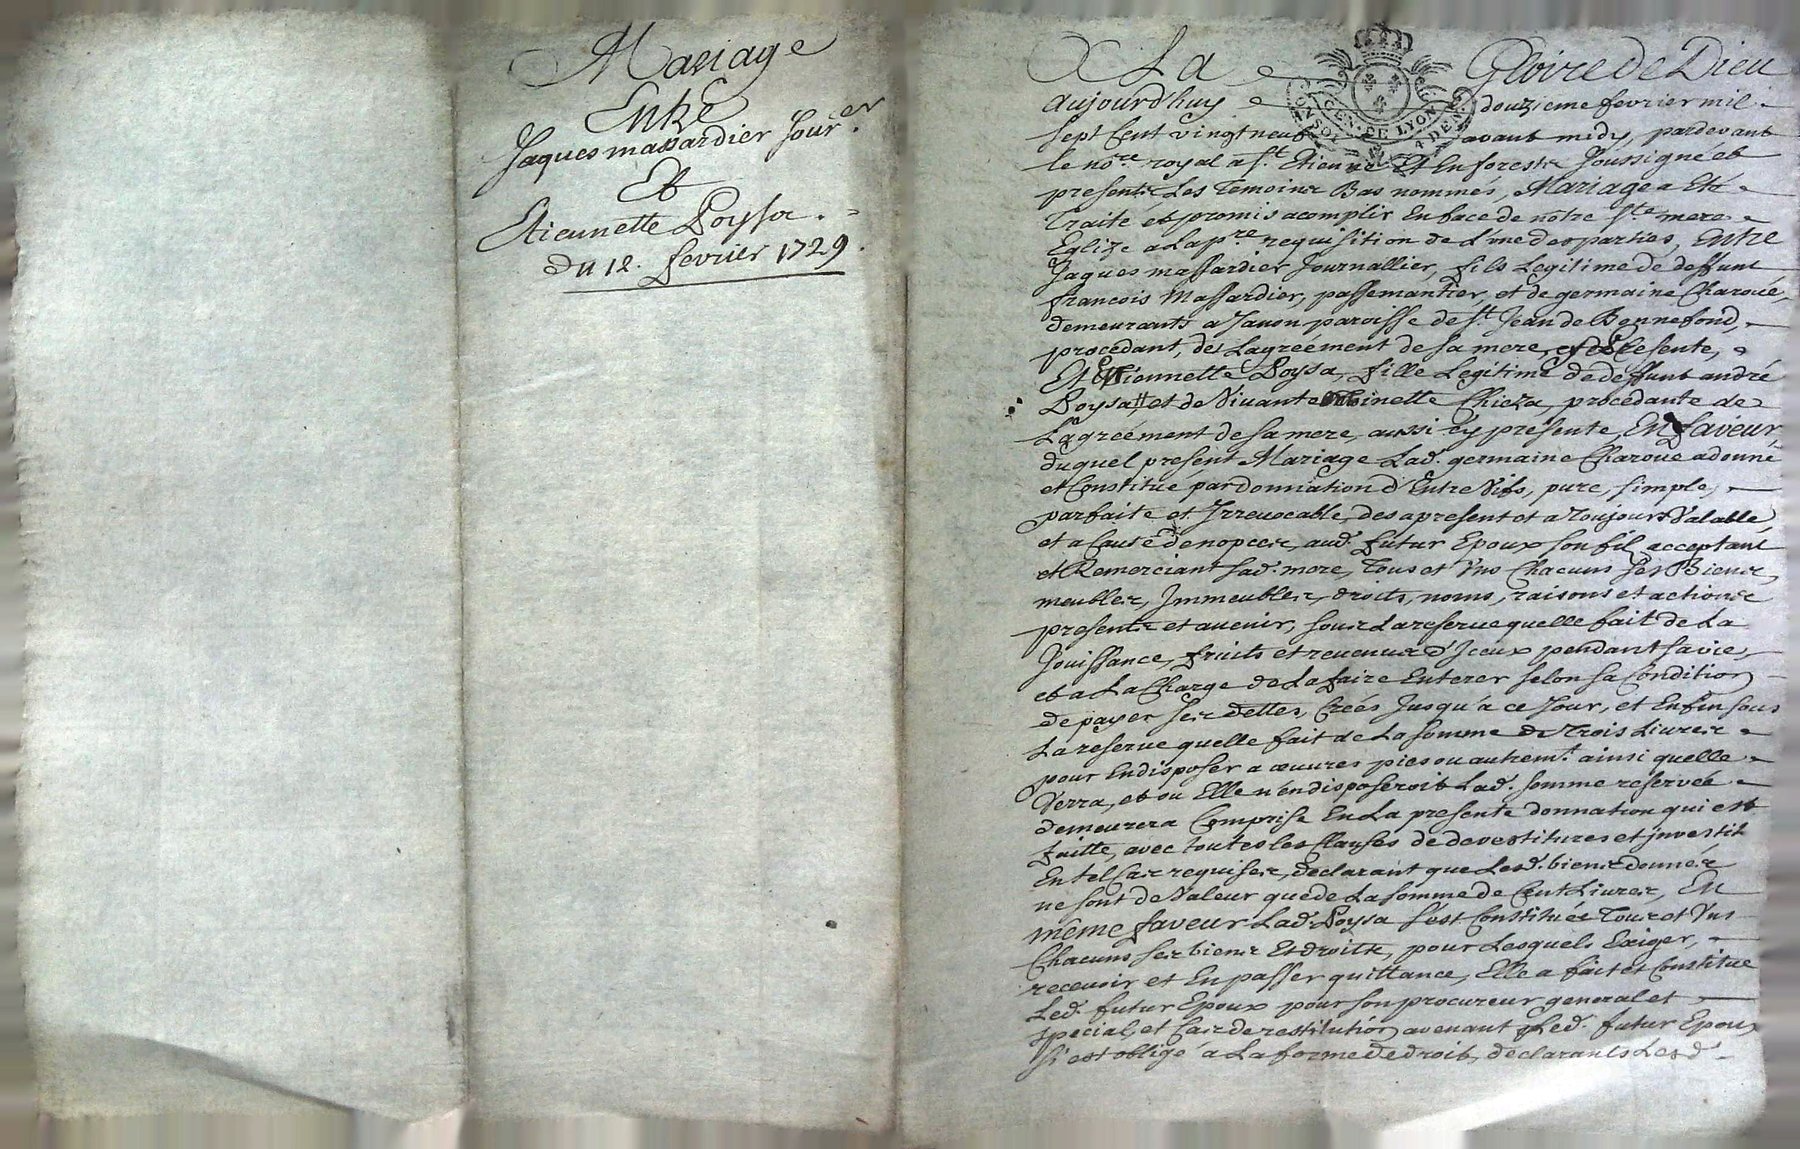 Mariage
Entre
Jaques massardier Jour.er
Et
Etiennette Poysa.
du 12. fevrier 1729.
A La Gloire de Dieu
aujourdhuy douzieme fevrier mil
sept Cent vingt neuf avant midy, pardevant
le no.re royal a S.t Etienne Et En forestz soussigné et
presents Les Temoins Bas nommés, Mariage a Eté
Traité et promis acomplir En face de nôtre S.te mere
Eglize a La p.re requisition de L'une des parties, Entre
Jaques massardier Journallier, fils Legitime de deffunt
francois Massardier, passemantier, et de germaine Charoue,
demeurants a Janon paroisse de S.t Jean de Bonnefond,
procedant, de Lagréement de sa mere, presente,
Et Etiennette Poysa, fille Legitime de deffunt andré
Poysa et de Vivante Chieza, procedante de
Lagréement de sa mere, aussi cy presente, En faveur
duquel present Mariage Lad. germaine Charoue a donné
et Constitué par donnation d'Entre Vifs, pure, simple,
parfaite et Irrevocable, des a present et a Toujours Valable,
et a Cause de nopces, aud. futur Epoux son fil, acceptant
et Remerciant sad. mere, Tous et Uns Chacuns ses Biens,
meubles, Immeubles, droits, noms, raisons et actions
presents et avenir, sous La reserve quelle fait de La
Jouissance, fruits et revenus d'Iceux pendant sa vie,
et a La Charge de La faire Enterer selon sa Condition
de payer ses dettes, Créés Jusqu'à ce Jour, et Enfin sous
La reserve quelle fait de La somme de Trois Livres
pour En disposer a œuvres pies ou autrem.t ainsi quelle
Verra, et ou Elle n'en disposeroit Lad. somme reservée
demeurera Comprise En La presente donnation qui est
faitte, avec toutes les Clauses de devestitures et jnvestit.
En tel Cas requises, declarant que Lesd. biens donnés
ne sont de Valeur que de La somme de Cent Livres, En
même faveur Lad. Poysa s'est Constituée Tous et Uns
Chacuns ses biens Et droits, pour Lesquels Exiger,
recevoir et En passer quittance, Elle a fait et Constitué
Led. futur Epoux pour son procureur general et
special, et Cas de restitution avenant Led. futur Epoux
s'est obligé a La forme de droit, declarants Lesd.
GEN. DE LYON